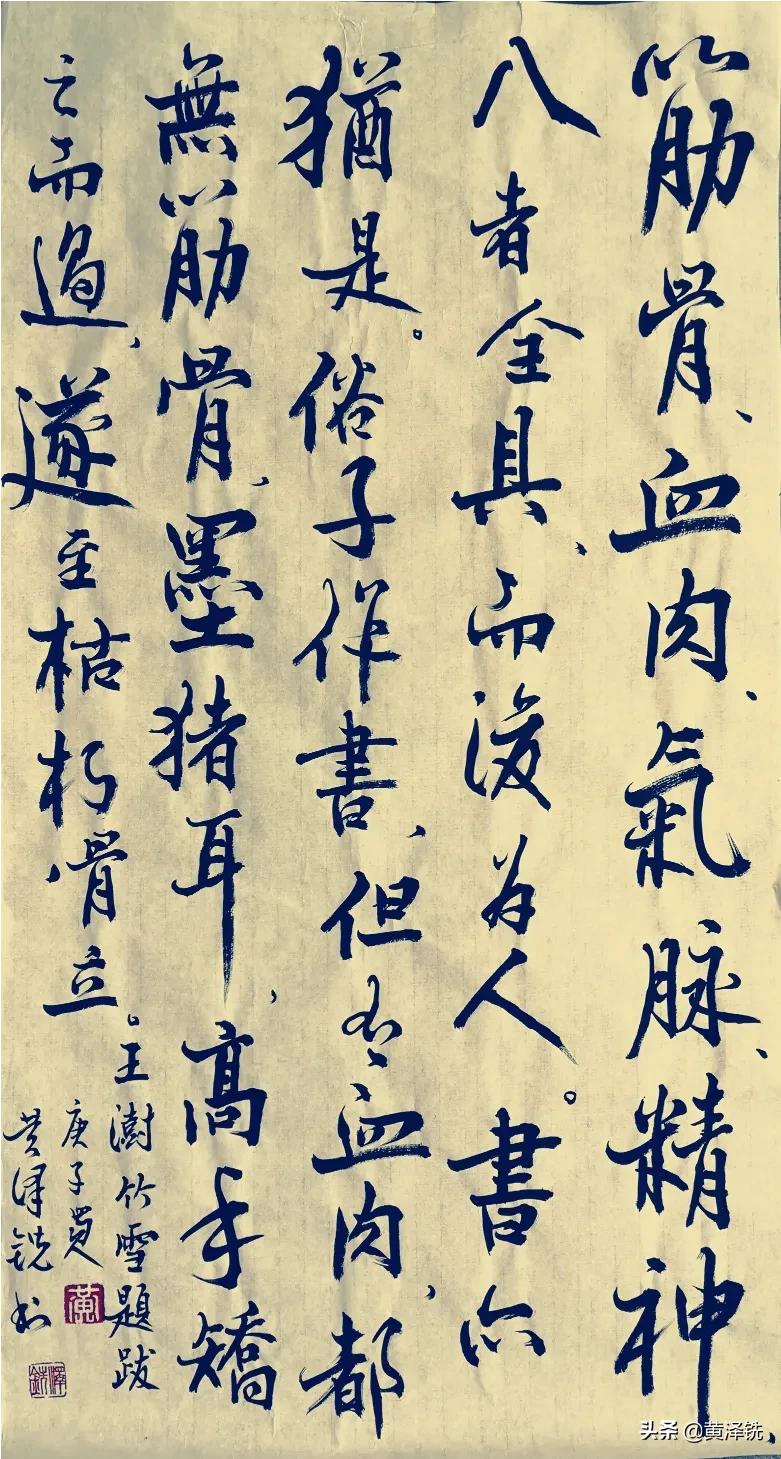 筋骨、血肉、氣脉、精神、
八者全具、而後为人。書亦
猶是。俗子作書、但有血肉、都
無筋骨、墨猪耳、高手矯
之而過、遂至枯朽骨立。王澍竹雲題跋
庚子夏
黄泽铣书
黄
澤銑
头条 @黄泽铣